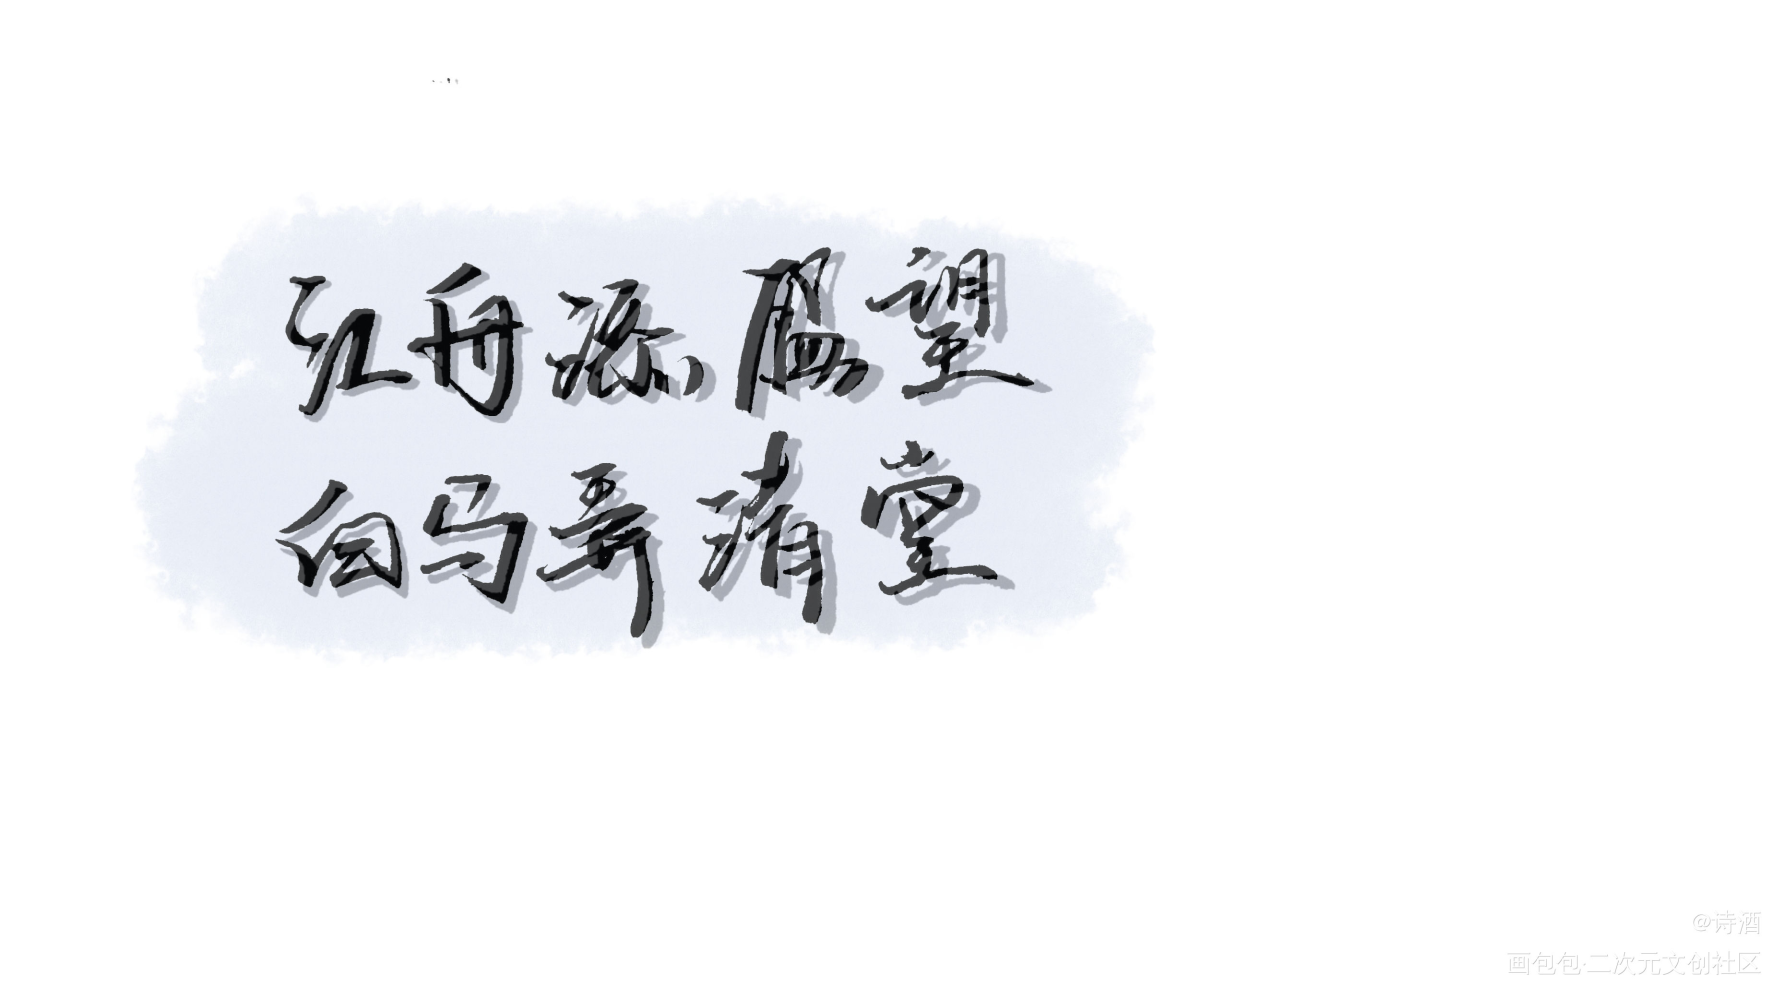 红舟添愿望
白马弄清堂
@诗酒
画包包·二次元文创社区